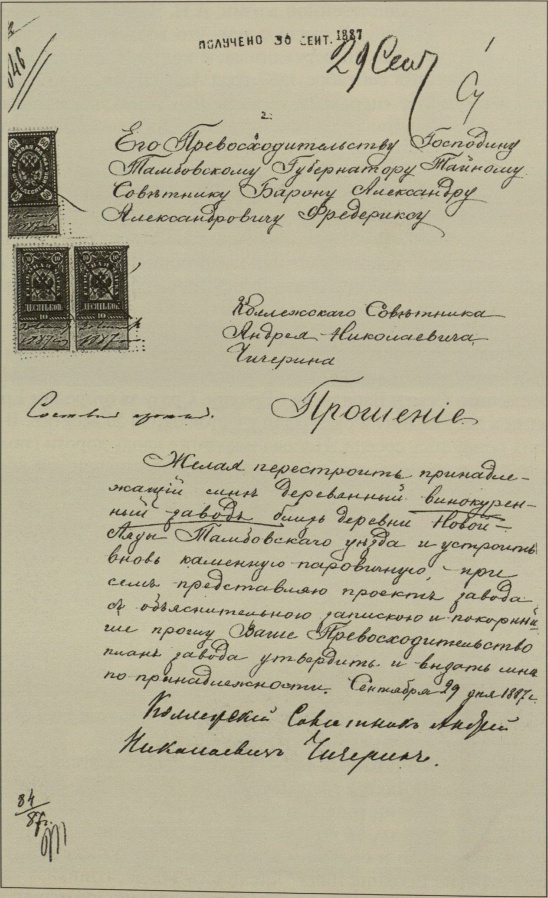 ПОЛУЧЕНО 30 СЕНТ. 1887
29 Сент
2.
Его Превосходительству Господину
Тамбовскому Губернатору Тайному
Совѣтнику Барону Александру
Александровичу Фредериксу
ДЕСЯТЬ КОП.
10
1887
ДЕСЯТЬ КОП.
10
1887
Коллежскаго Совѣтника
Андрея Николаевича
Чичерина
Прошеніе
Желая перестроить принадле-
жащій мнѣ деревянный винокурен-
ный заводъ близь деревни Новой
Ляды Тамбовскаго уѣзда и устроить
вновь каменную паровичную, при
семъ представляю проектъ завода
съ объяснительною запискою и покорнѣй
ше прошу Ваше Превосходительство
планъ завода утвердить и выдать мнѣ
по принадлежности. Сентября 29 дня 1887 г.
Коллежскій Совѣтникъ Андрей
Николаевичъ Чичеринъ.
84
87г.